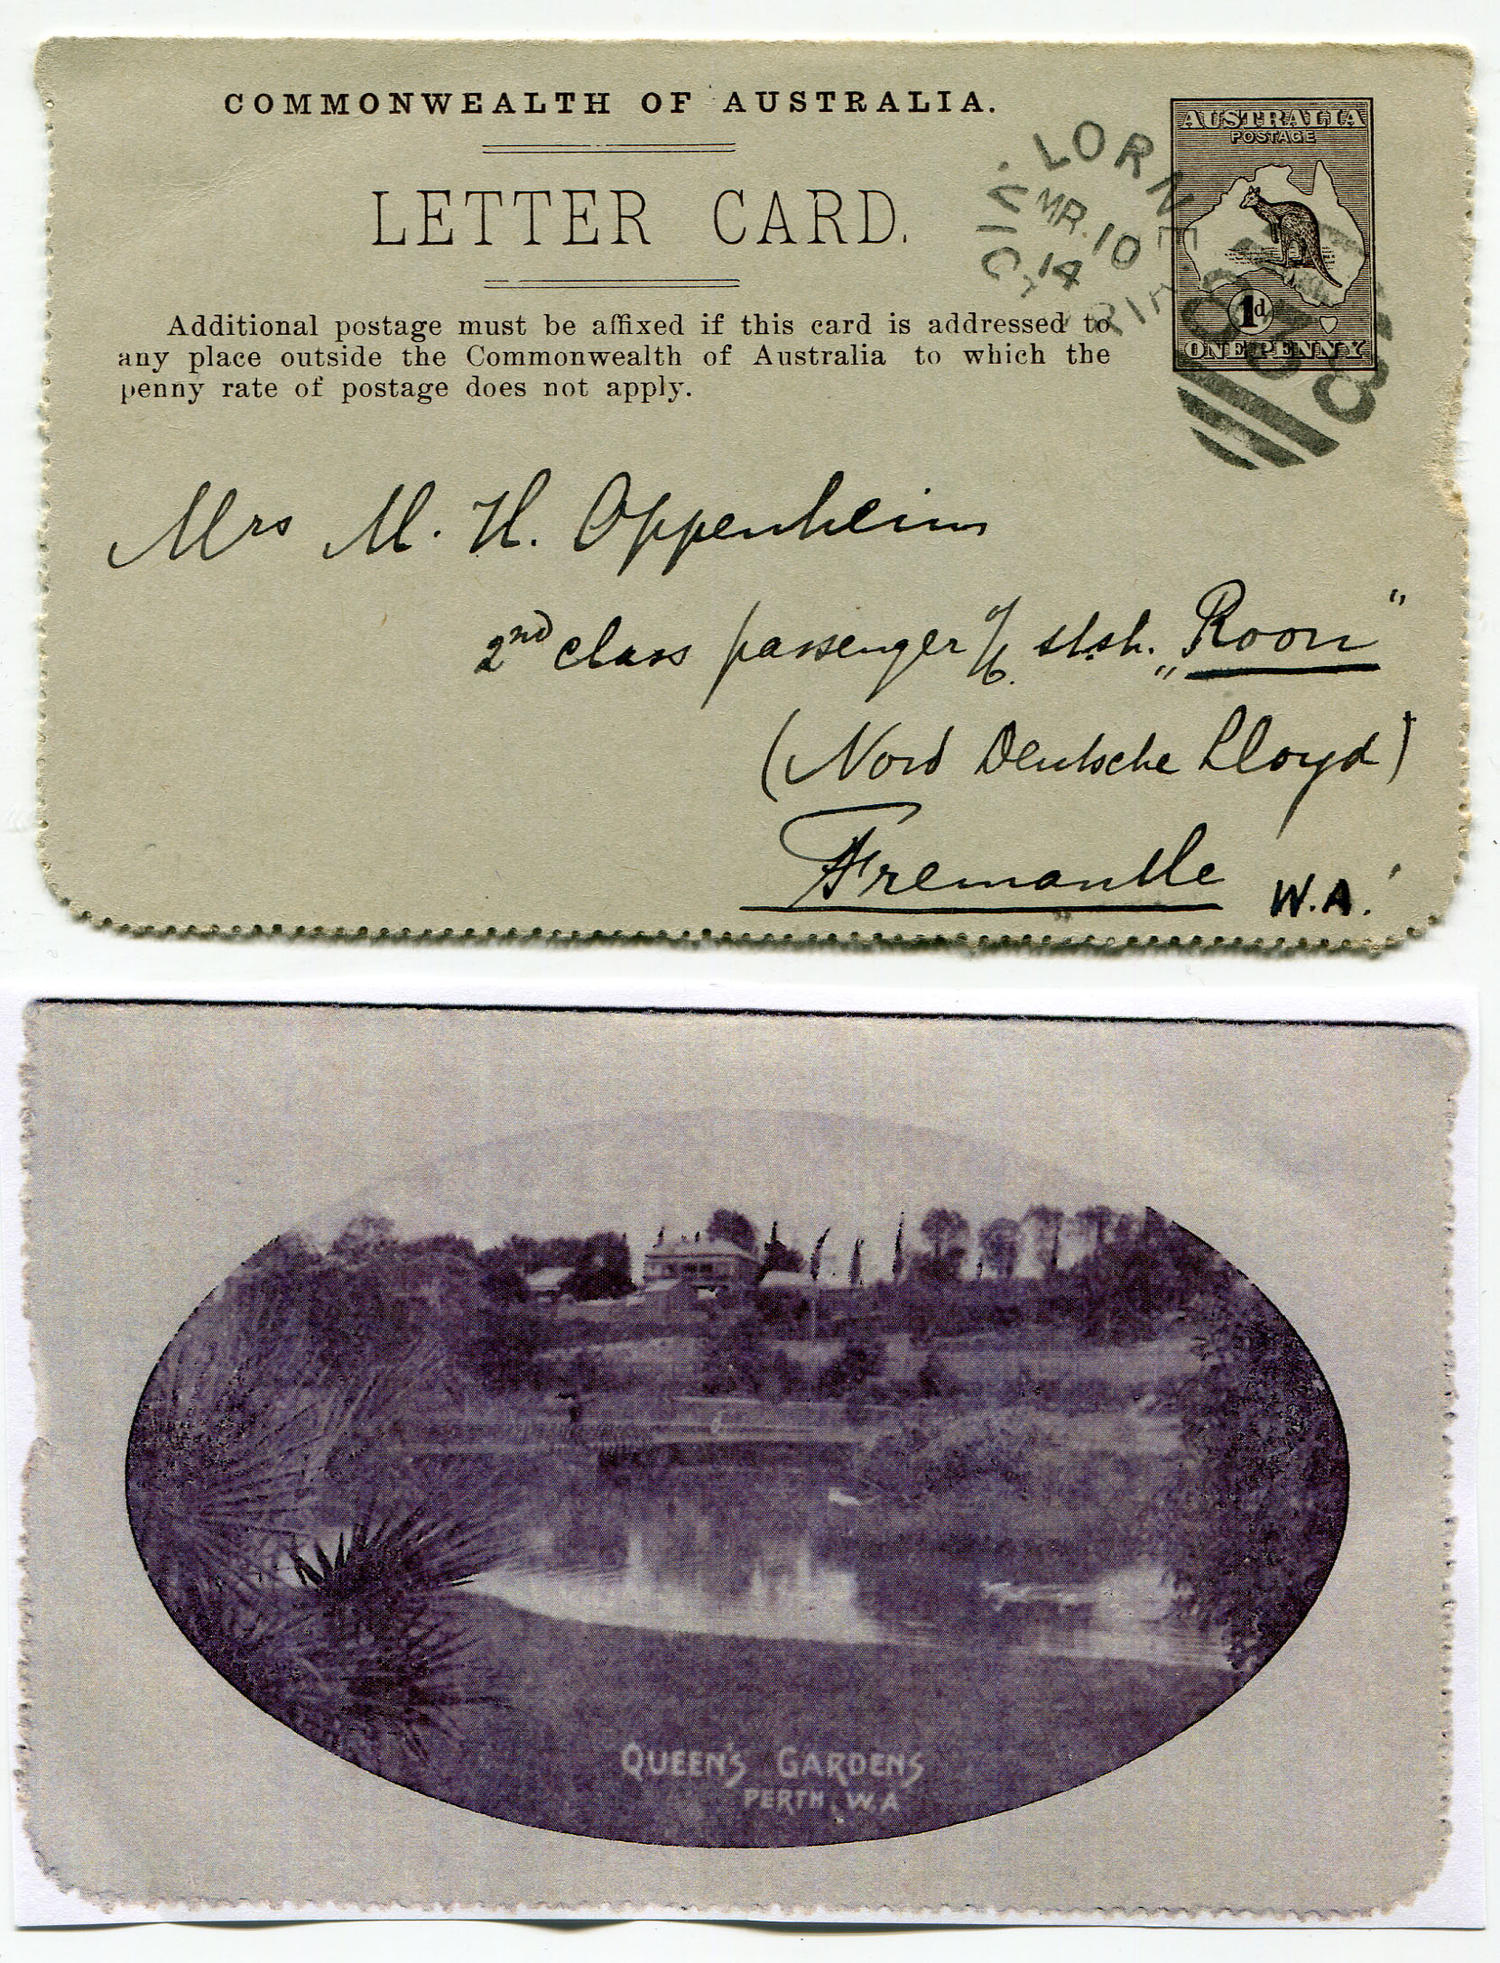 COMMONWEALTH OF AUSTRALIA.
LETTER CARD.
Additional postage must be affixed if this card is addressed to
any place outside the Commonwealth of Australia to which the
penny rate of postage does not apply.
AUSTRALIA
POSTAGE
1d
ONE PENNY
LORNE
MR.10
14
VICT
Mrs M. H. Oppenheim
2nd class passenger % st.sh. „Roon"
(Nord Deutsche Lloyd)
Fremantle W.A.
QUEEN'S GARDENS
PERTH, W.A